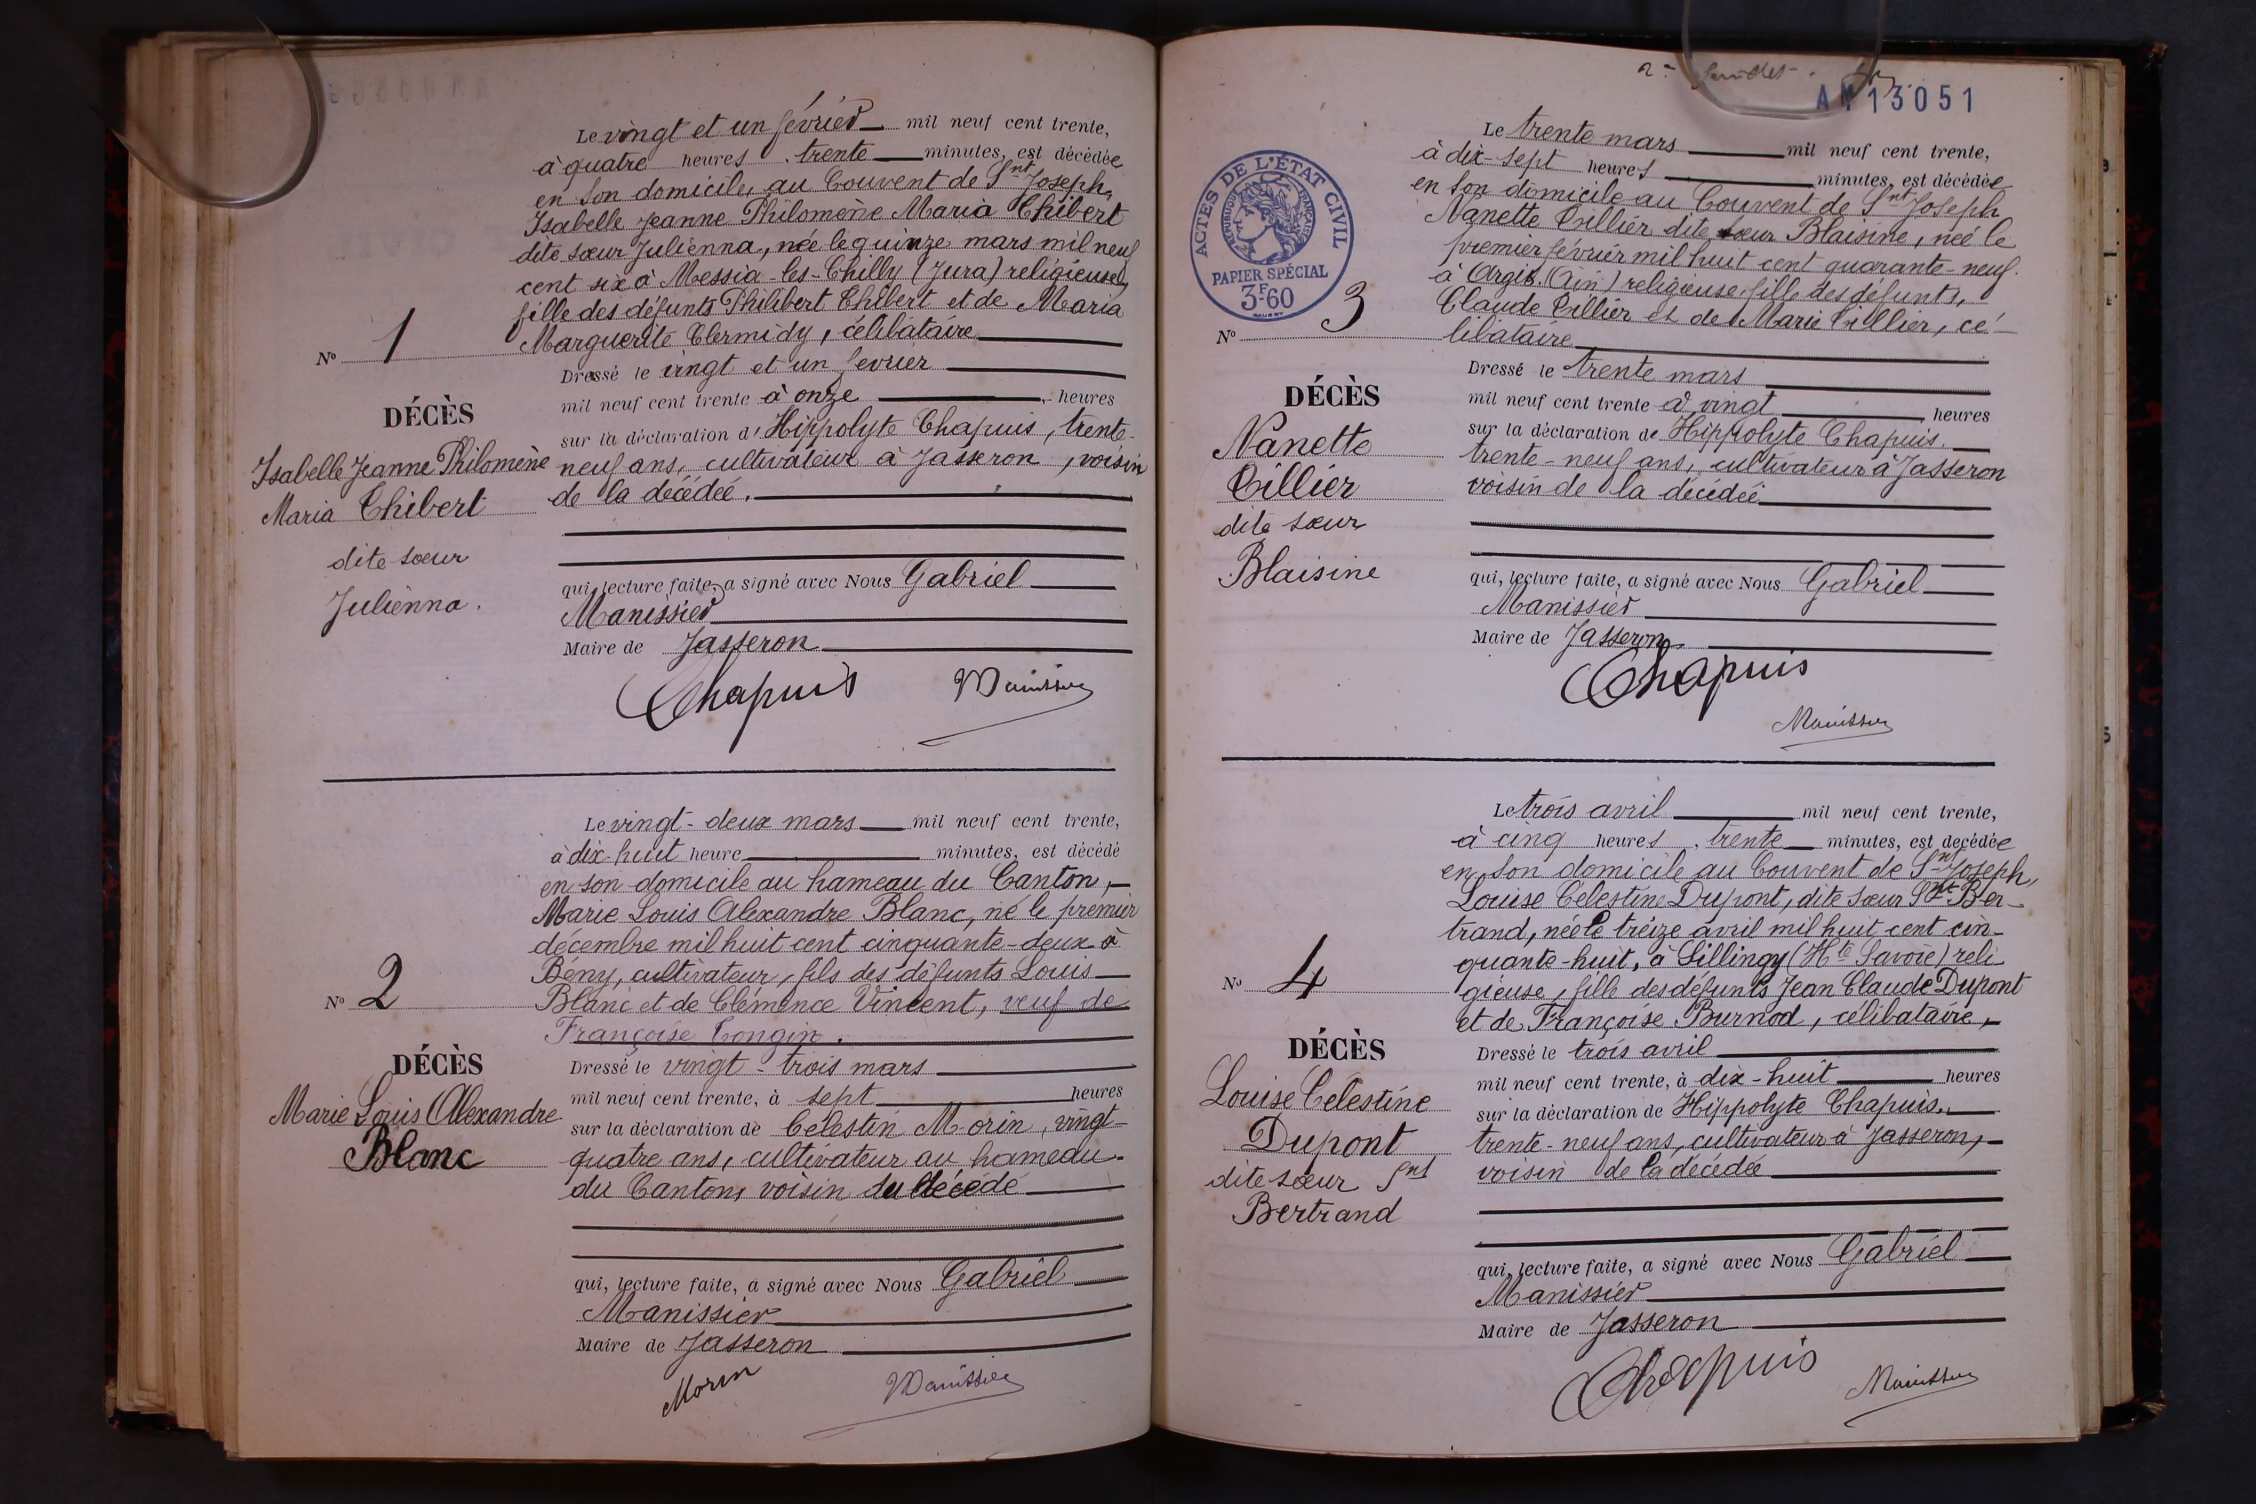 Le vingt et un février mil neuf cent trente,
à quatre heures trente minutes, est décédée
en son domicile, au Couvent de Snt Joseph,
Isabelle Jeanne Philomène Maria Thibert
dite sœur Julienna, née le quinze mars mil neuf
cent six à Messia-les-Chilly (Jura) religieuse,
fille des défunts Philibert Thibert et de Maria
Marguerite Clermidy, célibataire
No 1
Dressé le vingt et un fevrier
mil neuf cent trente à onze heures
DÉCÈS
sur la déclaration d' Hippolyte Chapuis, trente-
Isabelle Jeanne Philomène
neuf ans, cultivateur à Jasseron, voisin
Maria Thibert
de la décédée.
dite sœur
Julienna.
qui, lecture faite, a signé avec Nous Gabriel
Manissier
Maire de Jasseron
Chapuis Manissier
Le vingt-deux mars mil neuf cent trente,
à dix-huit heure minutes, est décédé
en son domicile au hameau du Canton,
Marie Louis Alexandre Blanc, né le premier
décembre mil huit cent cinquante-deux à
Bény, cultivateur, fils des défunts Louis
No 2
Blanc et de Clémence Vincent, veuf de
Françoise Congin.
DÉCÈS
Dressé le vingt-trois mars
mil neuf cent trente, à sept heures
Marie Louis Alexandre
Blanc
sur la déclaration de Célestin Morin, vingt-
quatre ans, cultivateur au hameau
du Canton, voisin du décédé
qui, lecture faite, a signé avec Nous Gabriel
Manissier
Maire de Jasseron
Morin Manissier
AM 13051
ACTES DE L'ÉTAT CIVIL
RÉPUBLIQUE FRANÇAISE
PAPIER SPÉCIAL
3F60
Le trente mars mil neuf cent trente,
à dix-sept heures minutes, est décédée
en son domicile au Couvent de Snt Joseph
Nanette Tillier dite sœur Blaisine, née le
premier février mil huit cent quarante-neuf
à Argis (Ain) religieuse fille des défunts,
Claude Tillier et de Marie Tillier, cé-
libataire
No 3
Dressé le trente mars
DÉCÈS
mil neuf cent trente à vingt heures
sur la déclaration de Hippolyte Chapuis,
Nanette
trente-neuf ans, cultivateur à Jasseron
Tillier
voisin de la décédée
dite sœur
Blaisine
qui, lecture faite, a signé avec Nous Gabriel
Manissier
Maire de Jasseron
Chapuis
Manissier
Le trois avril mil neuf cent trente,
à cinq heures trente minutes, est decédée
en son domicile au Couvent de Snt Joseph,
Louise Celestine Dupont, dite sœur Snt Ber-
trand, née le treize avril mil huit cent cin-
quante-huit, à Sillingy (Hte Savoie) reli
No 4
gieuse, fille des défunts Jean Claude Dupont
et de Françoise Burnod, célibataire,
DÉCÈS
Dressé le trois avril
mil neuf cent trente, à dix-huit heures
Louise Celestine
sur la déclaration de Hippolyte Chapuis,
Dupont
trente-neuf ans, cultivateur à Jasseron,
dite sœur Snt
voisin de la décédée
Bertrand
qui, lecture faite, a signé avec Nous Gabriel
Manissier
Maire de Jasseron
Chapuis Manissier